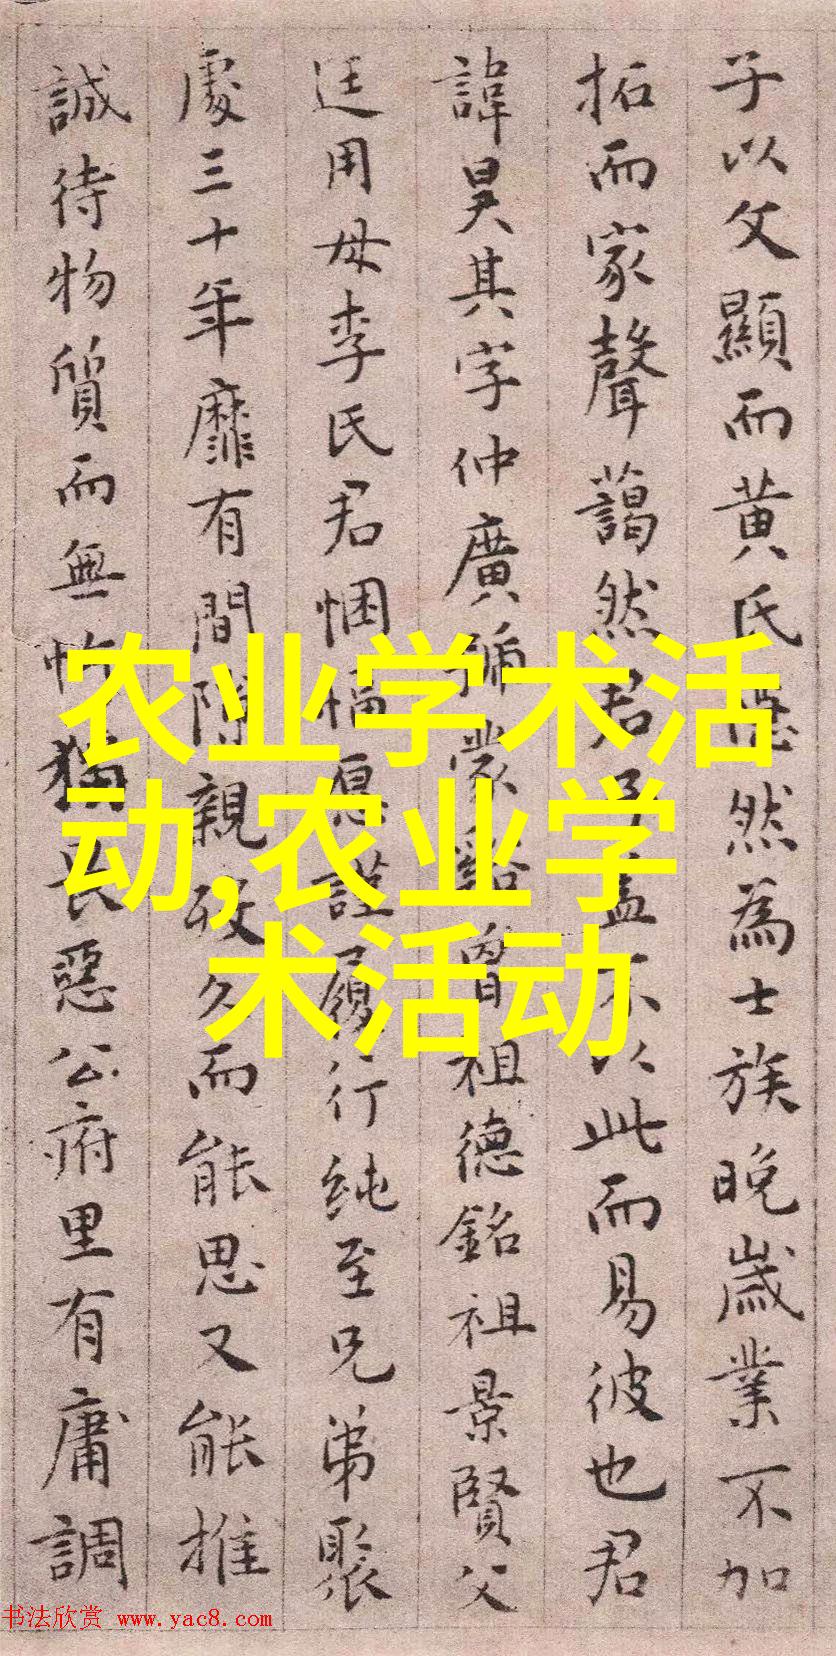 子以父顯而黃氏然為士族晚歲業不加
拓而家聲藹然君不以此而易彼也君
諱昊其字仲廣號蒙谿曾祖德銘祖景賢父
廷用母李氏君悃愊愿謹履行純至兄弟聚
處三十年靡有間隙親歿久而能思又能推
誠待物質而無忤猶畏惡公府里有庸調
农业学术活
动,农业学
术活动
书法欣赏 www.yac8.com